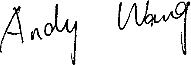 Andy Wang